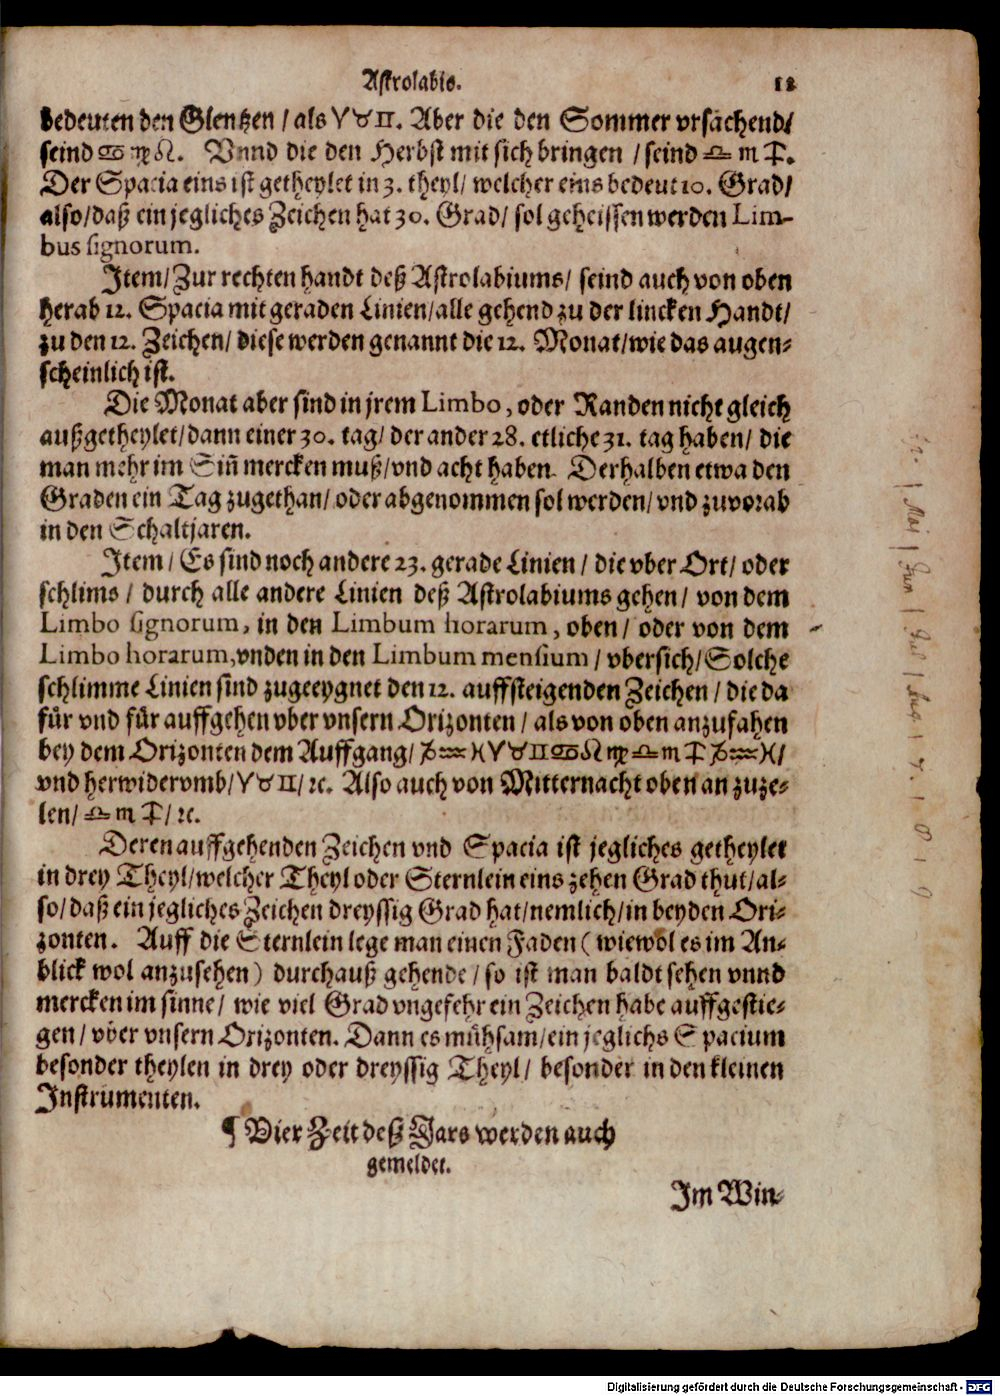 Astrolabio. 12
bedeuten den Glentzen / als ♈♉♊. Aber die den Sommer vrsachend/
seind ♋♍♌. Vnnd die den Herbst mit sich bringen / seind ♎♏♐.
Der Spacia eins ist getheylet in 3. theyl/ welcher eins bedeut 10. Grad/
also/daß ein jegliches Zeichen hat 30. Grad/ sol geheissen werden Lim-
bus signorum.
Item/Zur rechten handt deß Astrolabiums/ seind auch von oben
herab 12. Spacia mit geraden Linien/alle gehend zu der lincken Handt/
zu den 12. Zeichen/ diese werden genannt die 12. Monat/wie das augen-
scheinlich ist.
Die Monat aber sind in jrem Limbo, oder Randen nicht gleich
außgetheylet/dann einer 30. tag/ der ander 28. etliche 31. tag haben/ die
man mehr im Siñ mercken muß/vnd acht haben. Derhalben etwa den
Graden ein Tag zugethan/ oder abgenommen sol werden/ vnd zuvorab
in den Schaltjaren.
Item / Es sind noch andere 23. gerade Linien / die vber Ort/ oder
schlims / durch alle andere Linien deß Astrolabiums gehen/ von dem
Limbo signorum, in den Limbum horarum, oben/ oder von dem
Limbo horarum,vnden in den Limbum mensium / vbersich/Solche
schlimme Linien sind zugeeygnet den 12. auffsteigenden Zeichen / die da
für vnd für auffgehen vber vnsern Orizonten / als von oben anzufahen
bey dem Orizonten dem Auffgang/ ♑♒♓♈♉♊♋♌♍♎♏♐♑♒♓/
vnd herwidervmb/♈♉♊/ ꝛc. Also auch von Mitternacht oben an zuze-
len/ ♎♏♐/ ꝛc.
Deren auffgehenden Zeichen vnd Spacia ist jegliches getheylet
in drey Theyl/welcher Theyl oder Sternlein eins zehen Grad thut/al-
so/daß ein jegliches Zeichen dreyssig Grad hat/nemlich/in beyden Ori-
zonten. Auff die Sternlein lege man einen Faden ( wiewol es im An-
blick wol anzusehen ) durchauß gehende / so ist man baldt sehen vnnd
mercken im sinne / wie viel Grad vngefehr ein Zeichen habe auffgestie-
gen / vber vnsern Orizonten. Dann es mühsam/ein jeglichs Spacium
besonder theylen in drey oder dreyssig Theyl/ besonder in den kleinen
Instrumenten.
¶ Vier Zeit deß Jars werden auch
gemeldet.
Im Win-
Digitalisierung gefördert durch die Deutsche Forschungsgemeinschaft - DFG